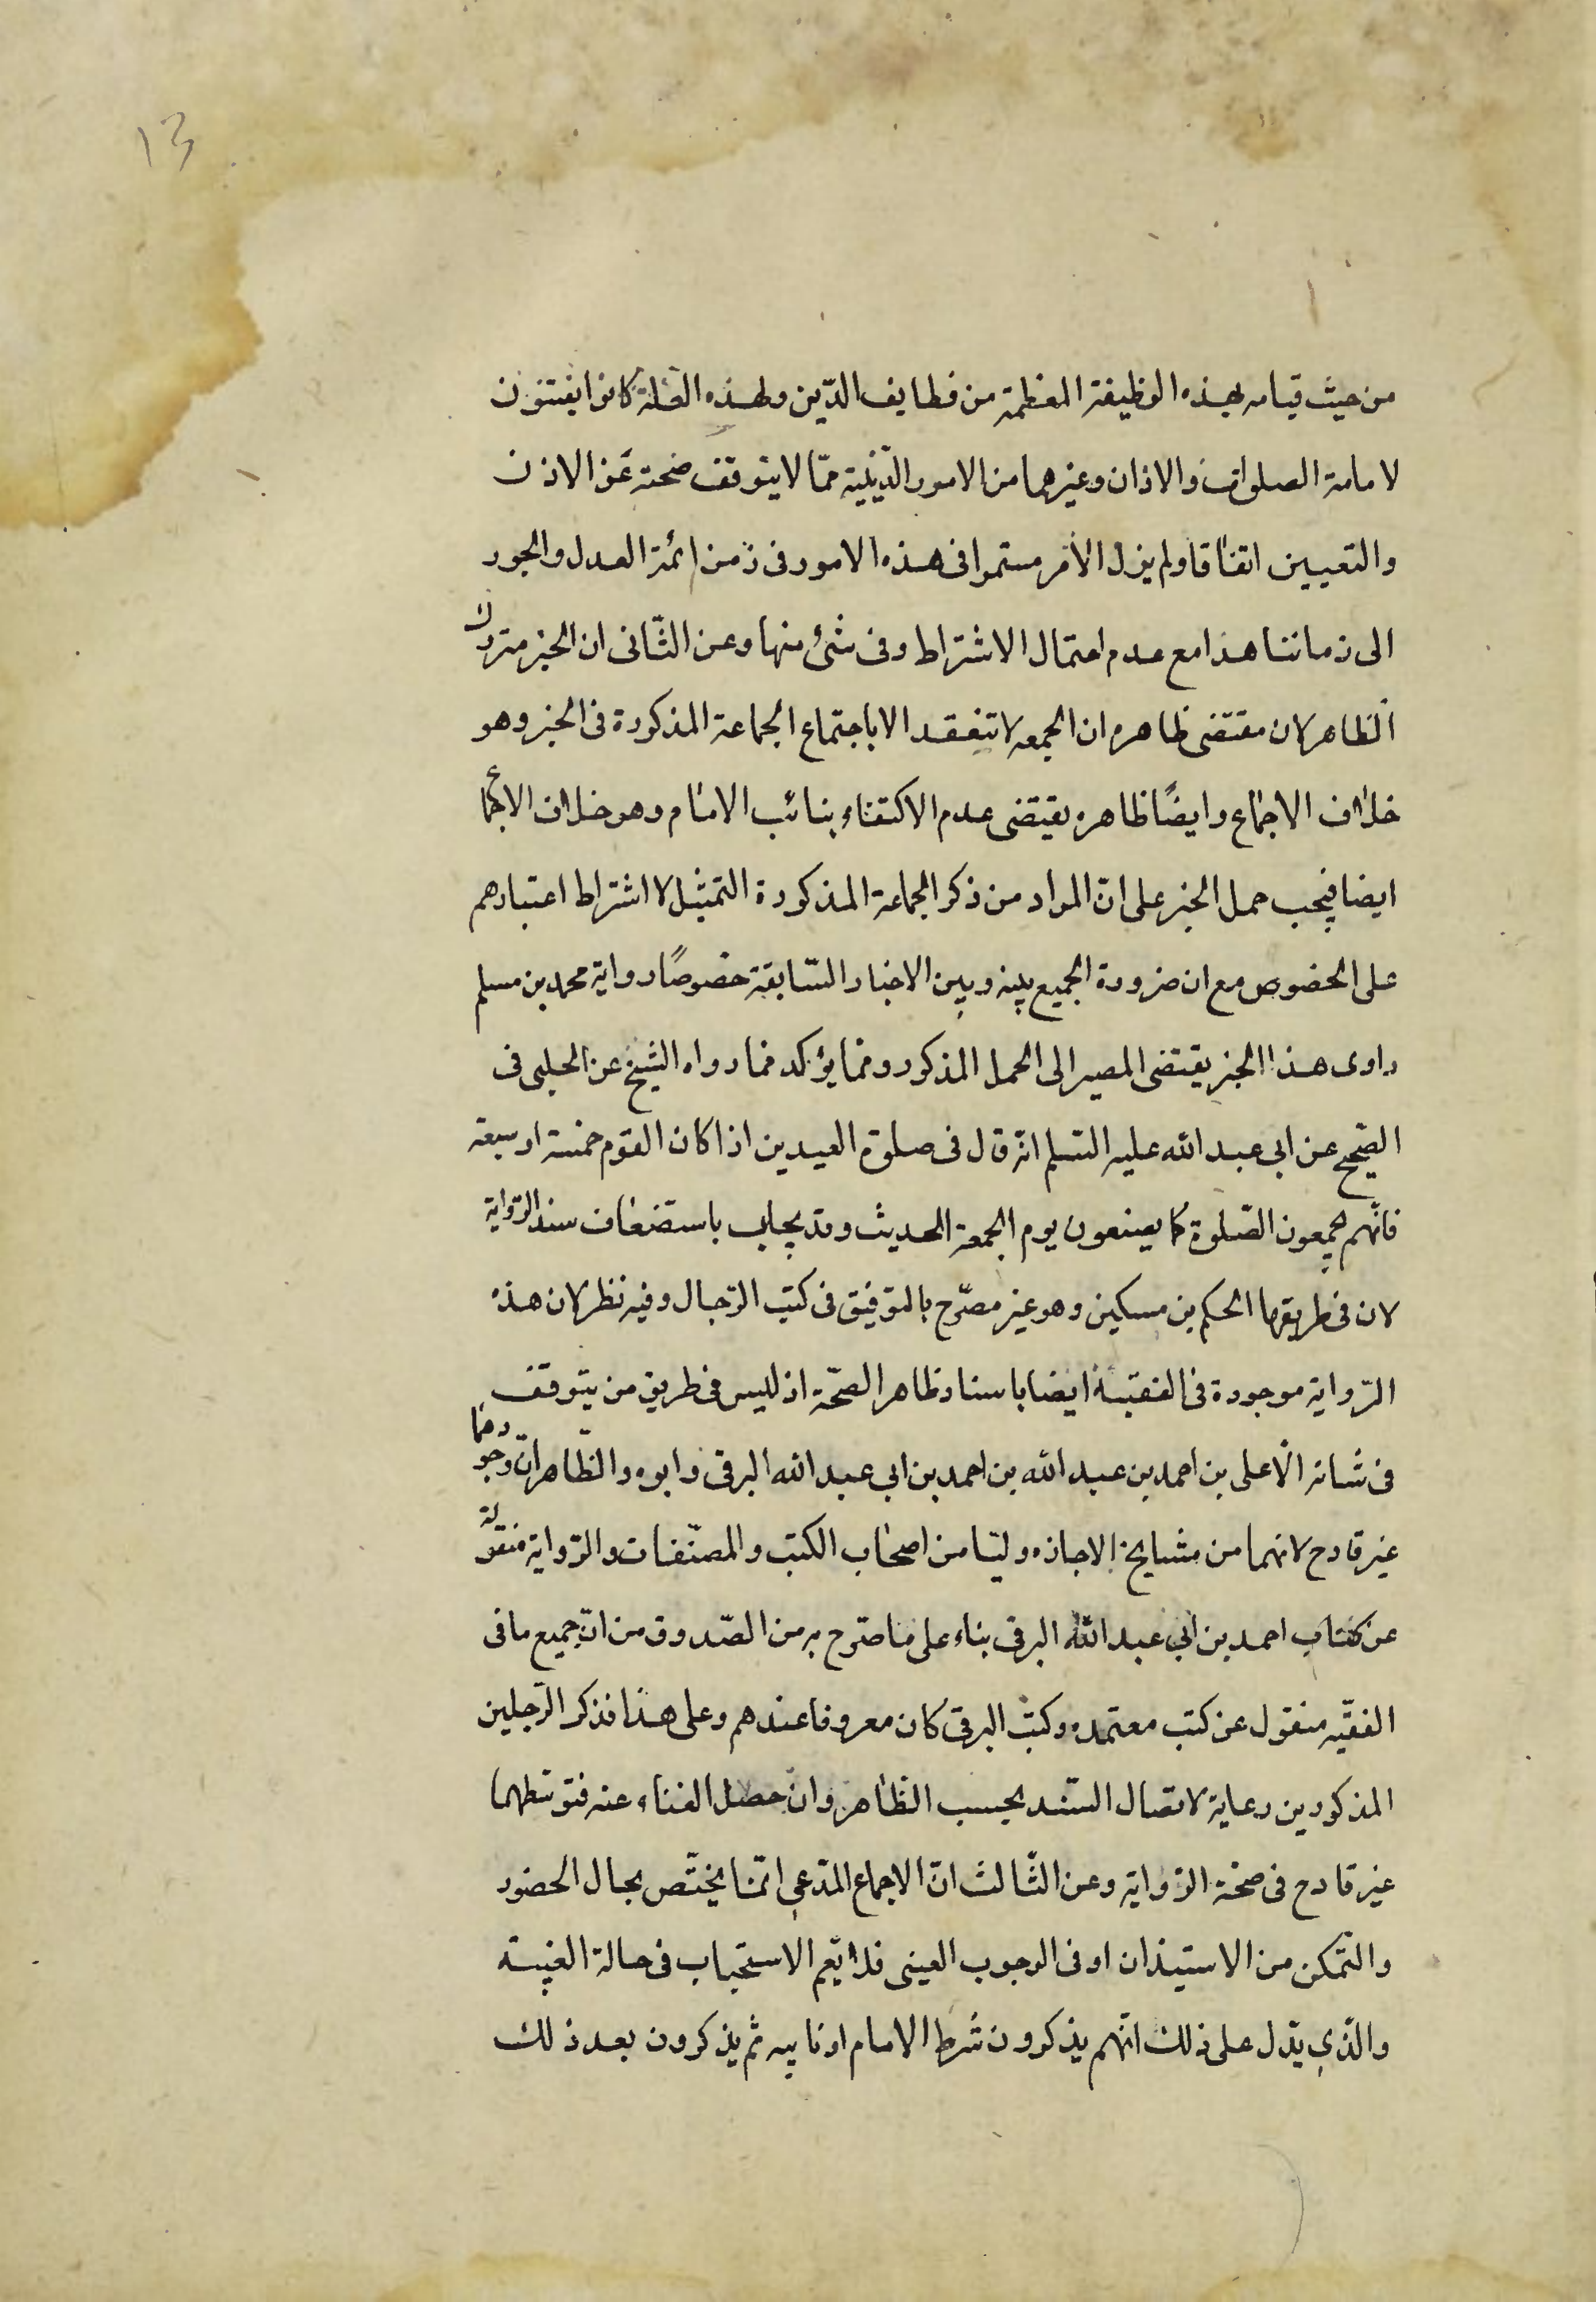 13
من حيث قيامه بهذه الوظيفة المعظمة من وظايف الدّين ولهذه العلة كانوا يفتنون
لامامة الصلوات والاذان وغيرهما من الامور الدّينية ممّا لا يتوقف صحته عن الاذن
والتعيين اتفاقا ولم يزل الأمر مستمرا فى هذه الامور فى زمن ائمة العدل والجور
الى زماننا هذا مع عدم احتمال الاشتراط وفى شئ منها وعن الثّانى ان الخبر متروك
الظاهر لان مقتضى ظاهره ان الجمعه لا تنعقد الا باجتماع الجماعة المذكورة فى الخبر وهو
خلاف الاجماع وايضًا ظاهره يقتضى عدم الاكتفاء بنائب الامام وهو خلاف الاجماع
ايضا فيجب حمل الخبر على انّ المراد من ذكر الجماعة المذكورة التمثيل لا اشتراط اعتبارهم
على الخصوص مع ان ضرورة الجميع بينه وبين الاخبار السّابقة خصوصًا رواية محمد بن مسلم
راوى هذا الخبر يقتضى المصير الى الحمل المذكور ومما يؤكد مما رواه الشيخ عن الحلبى فى
الصّحيح عن ابى عبد الله عليه السّلم انّه قال فى صلوة العيدين اذا كان القوم خمسة او سبعة
فانّهم يجمعون الصّلوة كما يصنعون يوم الجمعة الحديث وقد يجاب باستضعاف سند الرّواية
لان فى طريقها الحكم بن مسكين وهو غير مصرّح بالتوفيق فى كتب الرّجال وفيه نظر لان هذه
الرّواية موجودة فى الفقيه ايضا باسناد ظاهر الصحّة اذ ليس فى طريق من يتوقف
فى شانه الّا على بن احمد بن عبد الله بن احمد بن ابى عبد الله البرقى وابوه والظّاهر انّ وجودهما
غير قادح لانهما من مشايخ الاجازه وليسا من اصحاب الكتب والمصنّفات والرّواية منقولة
عن كتاب احمد بن ابى عبد الله البرقى بناء على ما صرّح به من الصّدوق من انّ جميع ما فى
الفقيه منقول عن كتب معتمده وكتب البرقى كان معروفا عندهم وعلى هذا فذكر الرّجلين
المذكورين رعاية لاتصال السّند بحسب الظّاهر وان حصل الغناء عنه فتوسّطهما
غير قادح فى صحّة الرّواية وعن الثّالث انّ الاجماع المدّعى انّما يختّص بحال الحضور
والتّمكن من الاستيذان او فى الوجوب العينى فلا يعم الاستحباب فى حالة الغيبة
والّذى يدّل على ذلك انّهم يذكرون شرط الامام او نايبه ثم يذكرون بعد ذلك